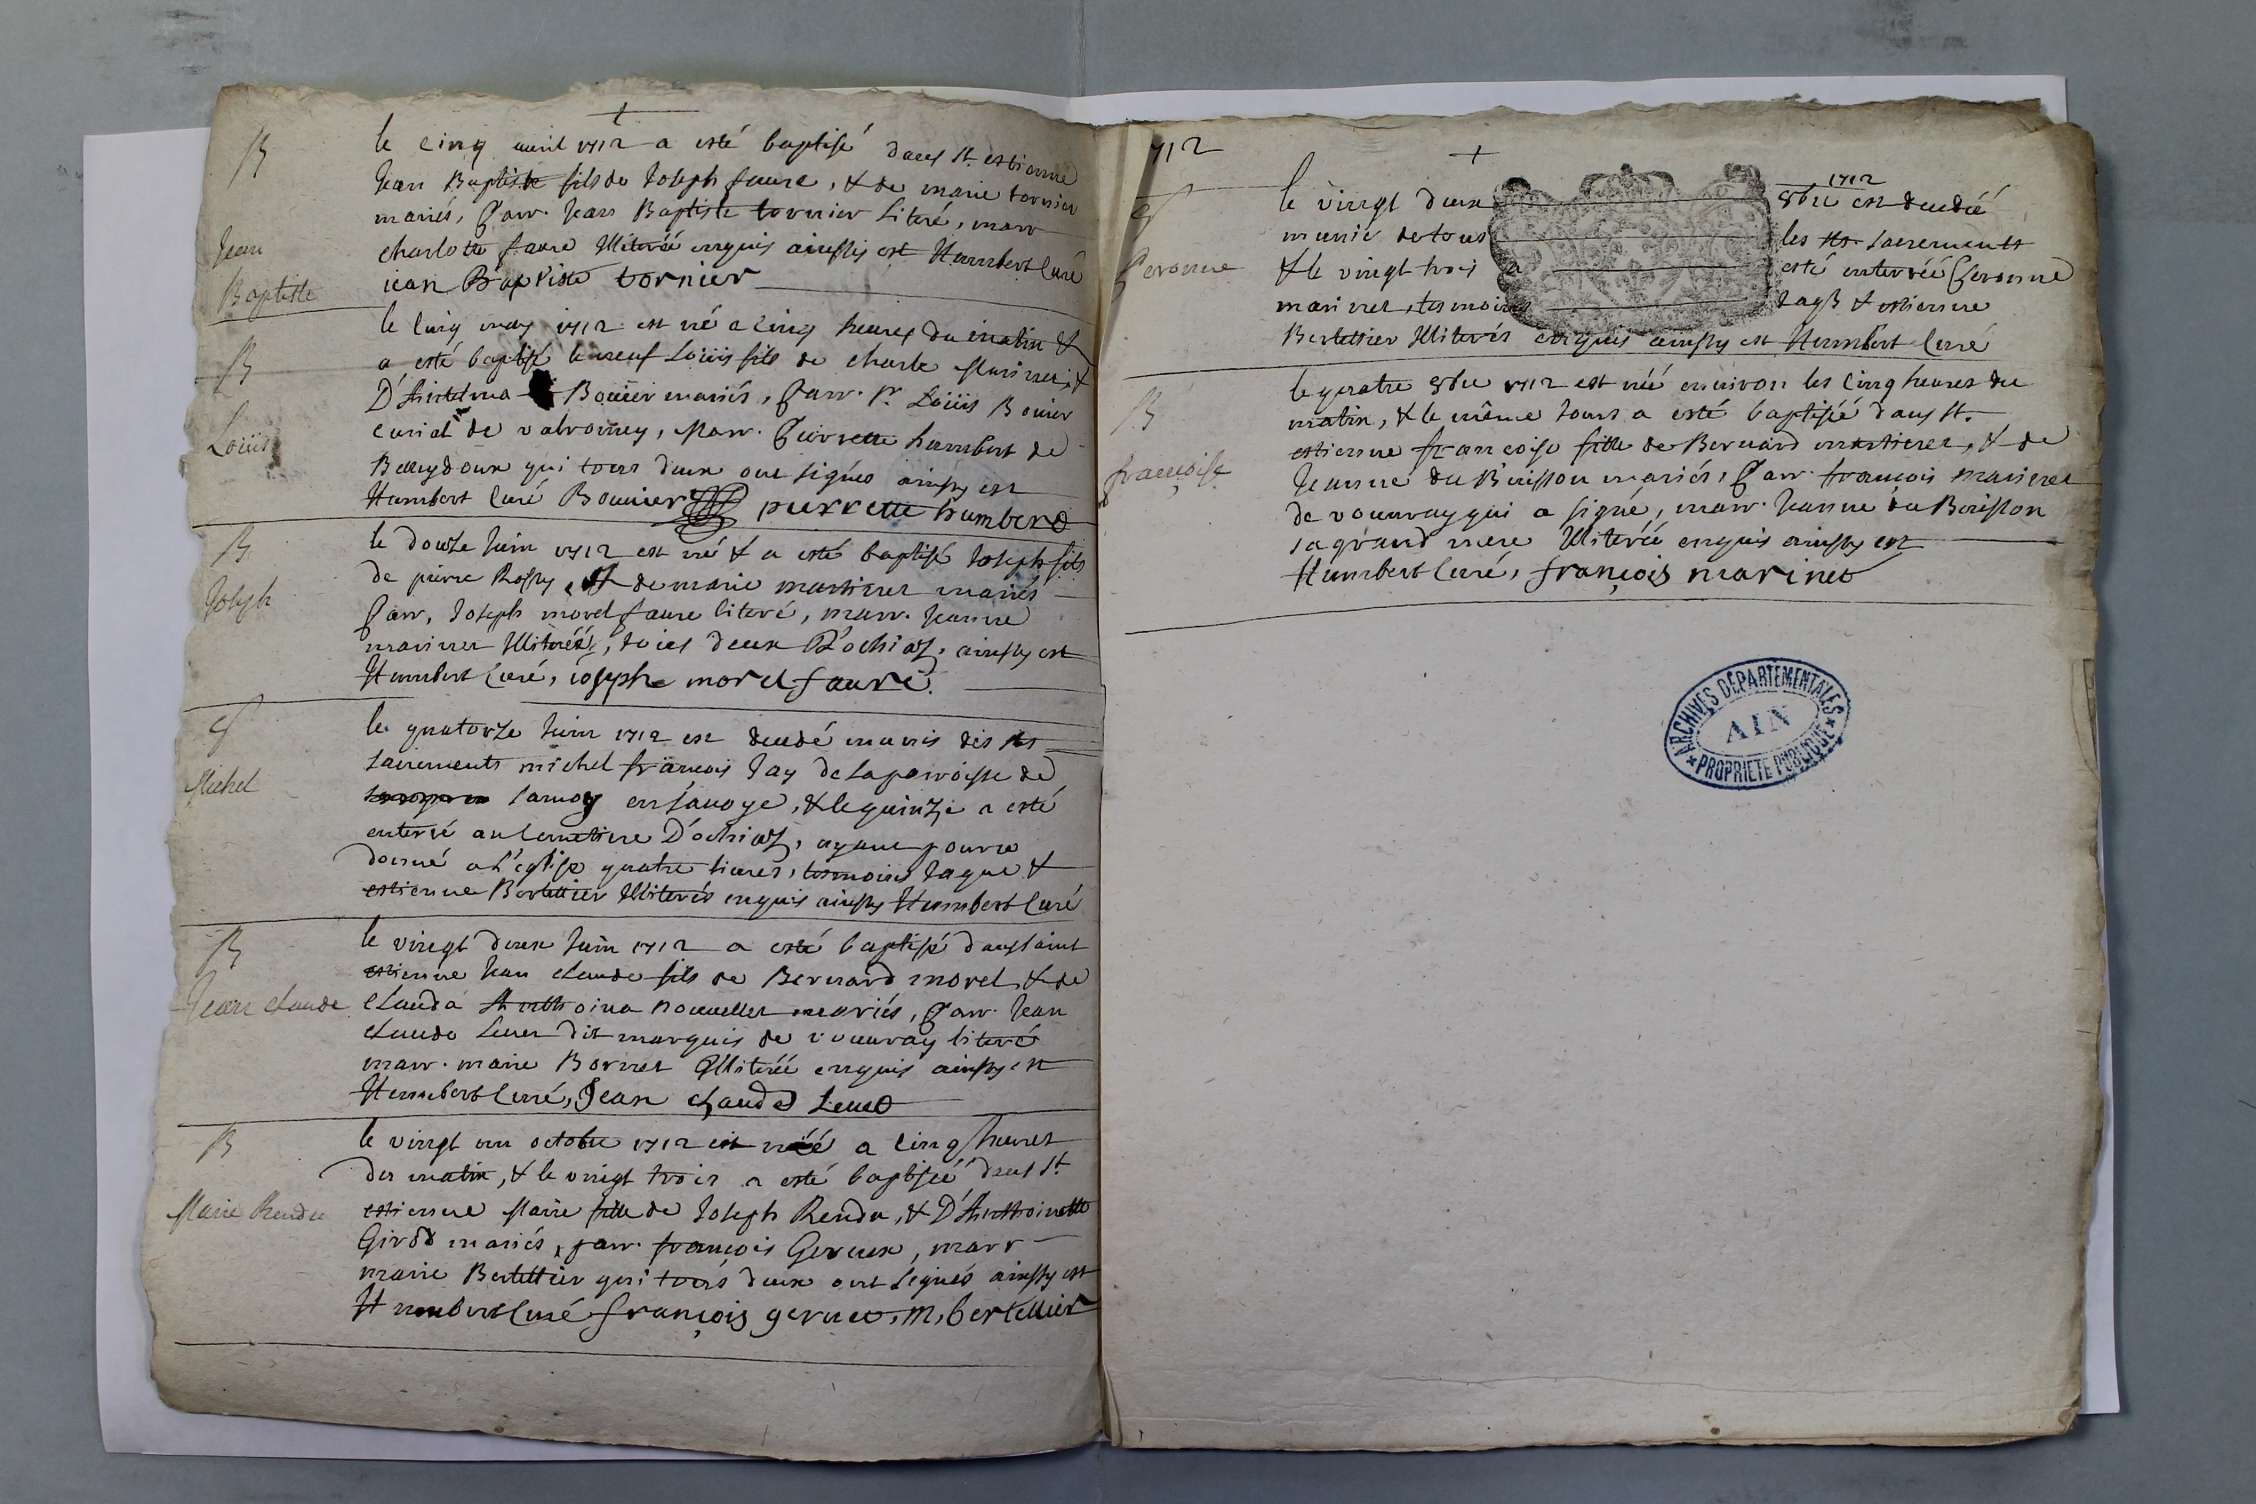 B
Jean
Baptiste
le cinq avril 1712 a esté baptisé dans st. estienne
Jean Baptiste fils de Joseph faure, & de marie tornier
mariés, parr. Jean Baptiste tornier literé, marr
charlotte faure Illiterée enquis ainssy est Humbert Curé
iean Baptiste tornier
B
Loüis
le cinq may 1712 est né a cinq heures du matin &
a esté baptisé le neuf Loüis fils de charle Marinet, &
D'Anthelma Bouuier mariés, parr. Sr. Loüis Bouier
curial de valromey, Marr. pierrette humbert de
Belleydoux qui tous deux ont signés ainssy est
Humbert Curé Bouuier pierrette humbero
B
Joseph
le douze Juin 1712 est né & a esté baptisé Joseph fils
de pierre Rossy, & de marie martinet mariés
parr, Joseph morel faure literé, marr. Jeanne
marinet Illiterée, tous deux D'ochiaz, ainssy est
Humbert Curé, ioseph morel faure
S
Michel
le quatorze Juin 1712 est decedé munis des sts
sacrements michel françois Jay de la parroisse de
samoy en sauoye, & le quinze a esté
enterré au cemetiere D'ochiaz, ayant pouvre
donné a l'eglise quatre liures, tesmoins Jaque &
estienne Bertettier Illiterés enquis ainssy Humbert Curé
B
Jean claude
le vingt deux Juin 1712 a esté baptisé dans saint
estienne Jean claude fils de Bernard morel, & de
clauda Anthoina nouuellet mariés, parr. Jean
claude Leuet dit marquis de vouuray literé
marr. marie Bornet Illiterée enquis ainssy est
Humbert Curé, Jean claude Leueo
B
Marie Rendu
le vingt un octobre 1712 est née a cinq heures
du matin, & le vingt trois a esté baptisée dans st.
estienne Marie fille de Joseph Rendu, & D'Anthoinette
Girod mariés, parr. françois Gervex, marr
marie Bertettier qui tous deux ont signés ainssy est
Humbert Curé françois geruex, m, bertettier
1712
S
Peronne
1712
le vingt deux 8bre est decedée
munie de tous les sts. sacrements
& le vingt trois a esté enterrée Peronne
marinet, tesmoins Jaqz & estienne
Bertettier Illiterés enquis ainssy est Humbert Curé
B
françoise
le quatre 9bre 1712 est née enuiron les cinq heures du
matin, & le même Jour a esté baptisée dans st.
estienne françoise fille de Bernard martinet, & de
Jeanne du Buisson mariés, parr. françois marinet
de vouuray qui a signé, marr. Jeanne du Buisson
sa grand mere Illiterée enquis ainssy est
Humbert Curé, françois marineo
ARCHIVES DÉPARTEMENTALES
AIN
PROPRIETE PUBLIQUE